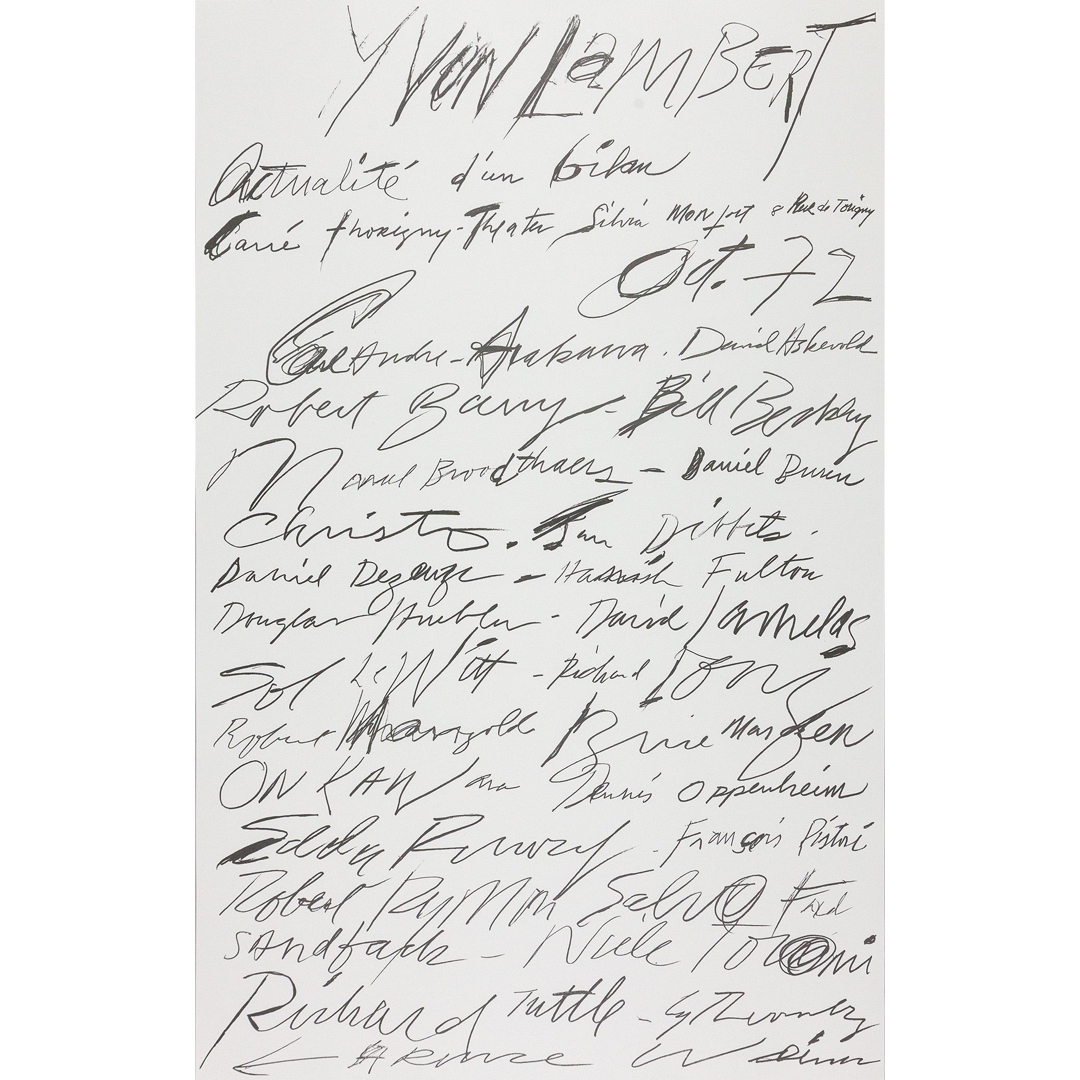 YVON LAMBERT
Actualité d'un bilan
Carré Thorigny-Theater Silvia Monfort 8 Rue de Torigny
Oct. 72
Carl Andre - Arakawa. David Askevold
Robert Barry - Bill Beckley
Marcel Broodthaers - Daniel Buren
Christo. Jan Dibbets.
Daniel Dezeuze - Hamish Fulton
Douglas Huebler - David Lamelas
Sol LeWitt - Richard Long
Robert Mangold Brice Marden
ON KAWara Dennis Oppenheim
Edda Renouf. François Ristori
Robert Ryman Salvo Fred
SAndback - Niele Toroni
Richard Tuttle - Cy Twombly
Lawrence Weiner